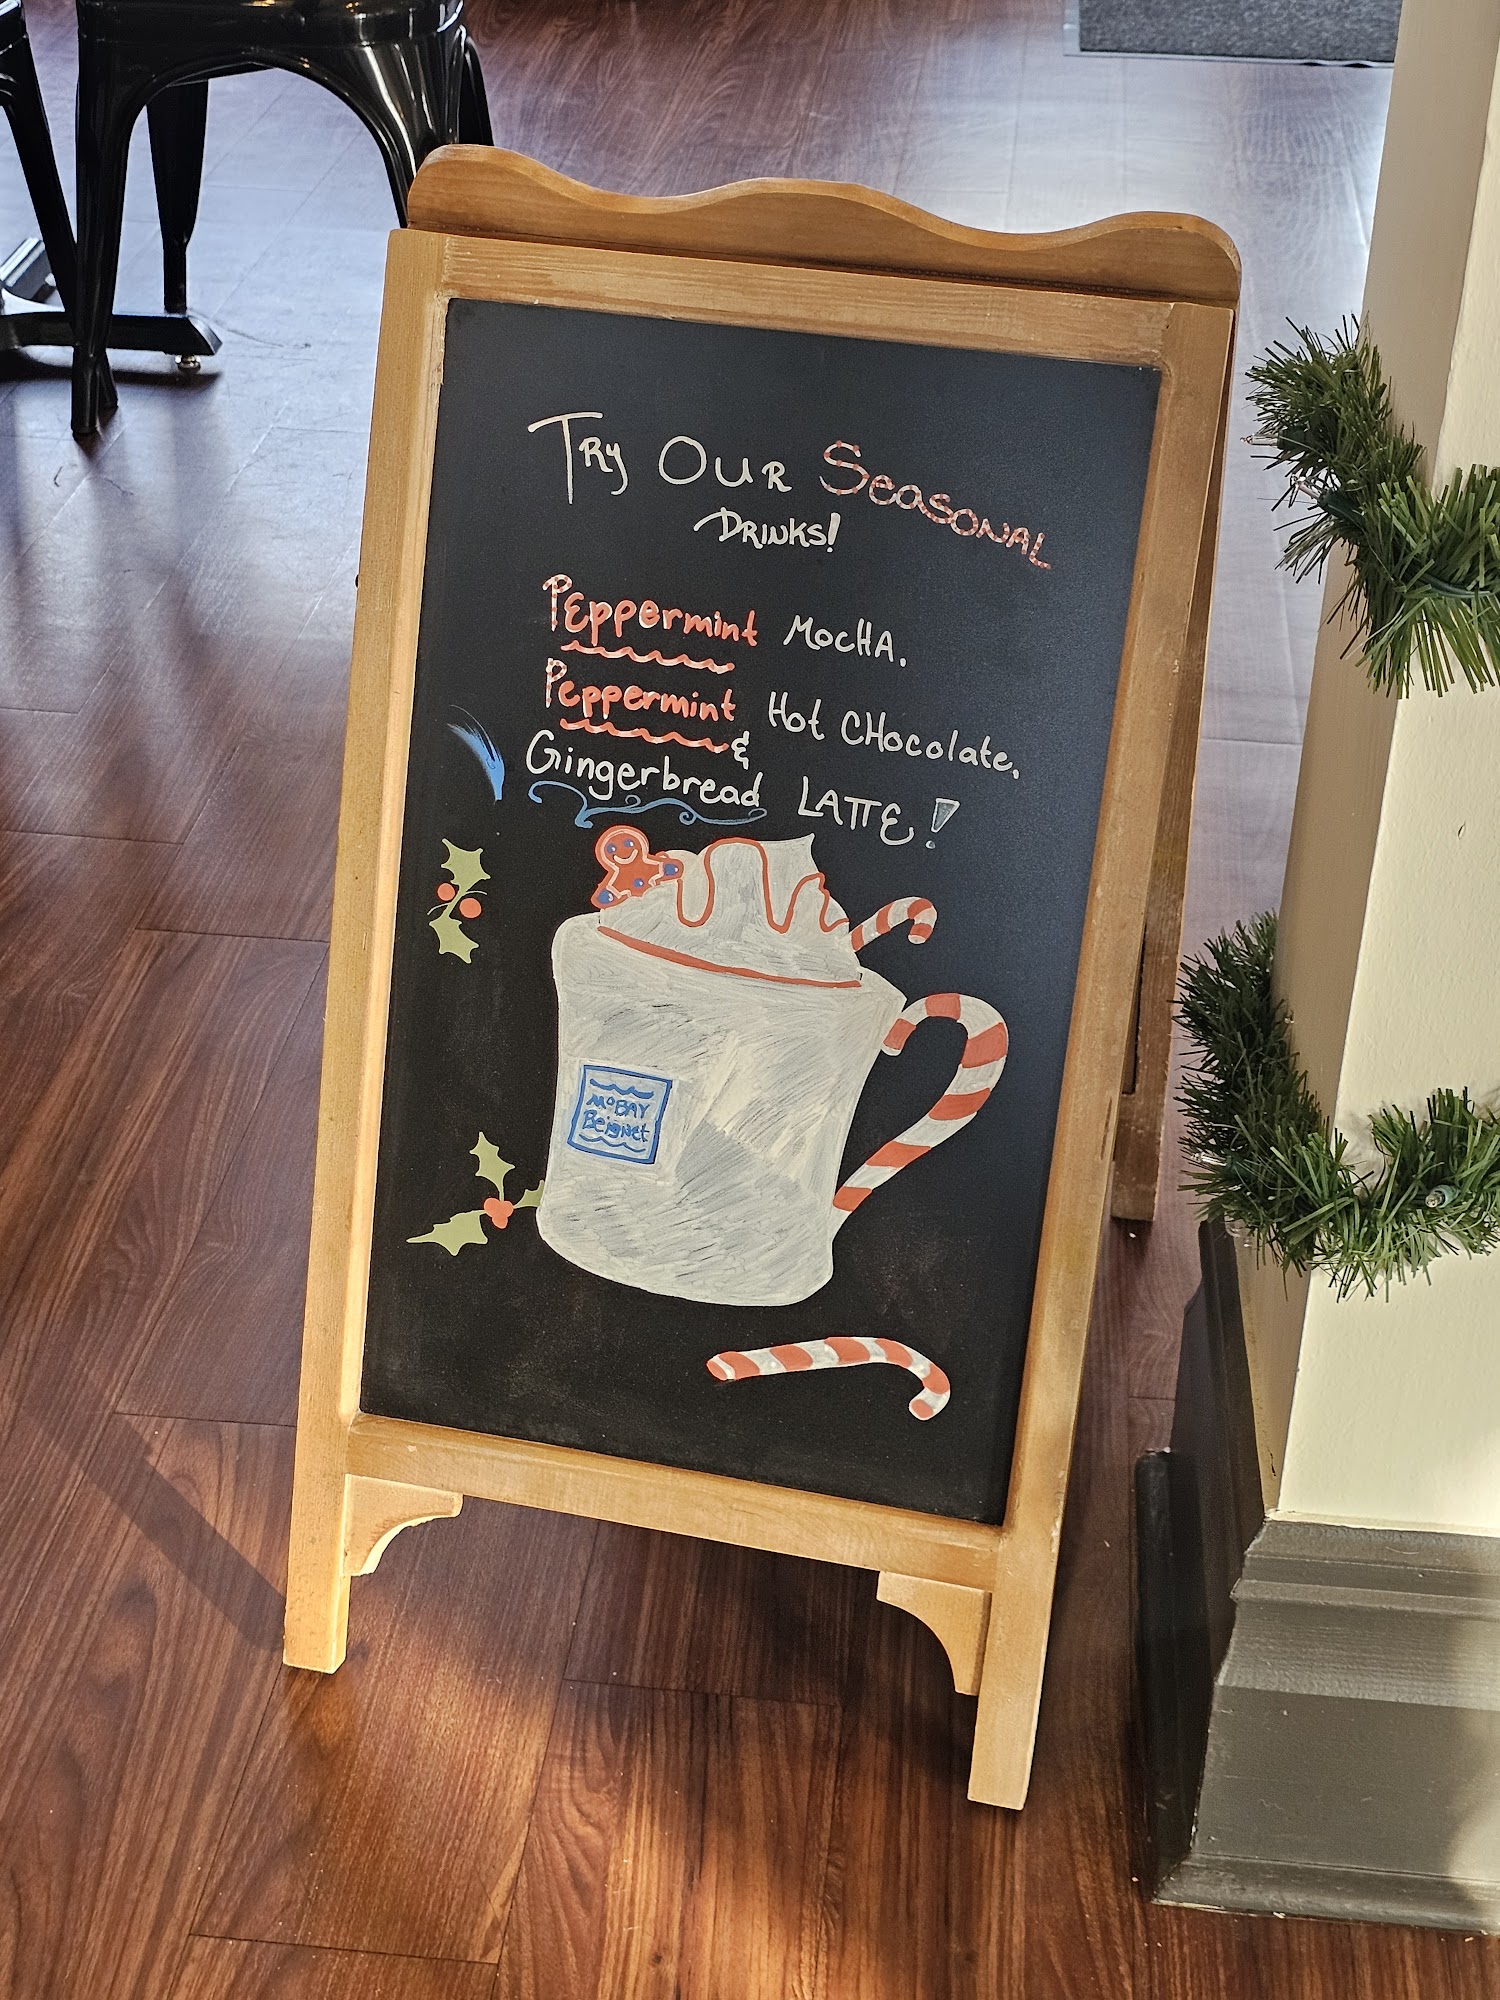 Try Our Seasonal
Drinks!
Peppermint Mocha.
Peppermint Hot Chocolate.
&
Gingerbread Latte!
MoBay
Beignet